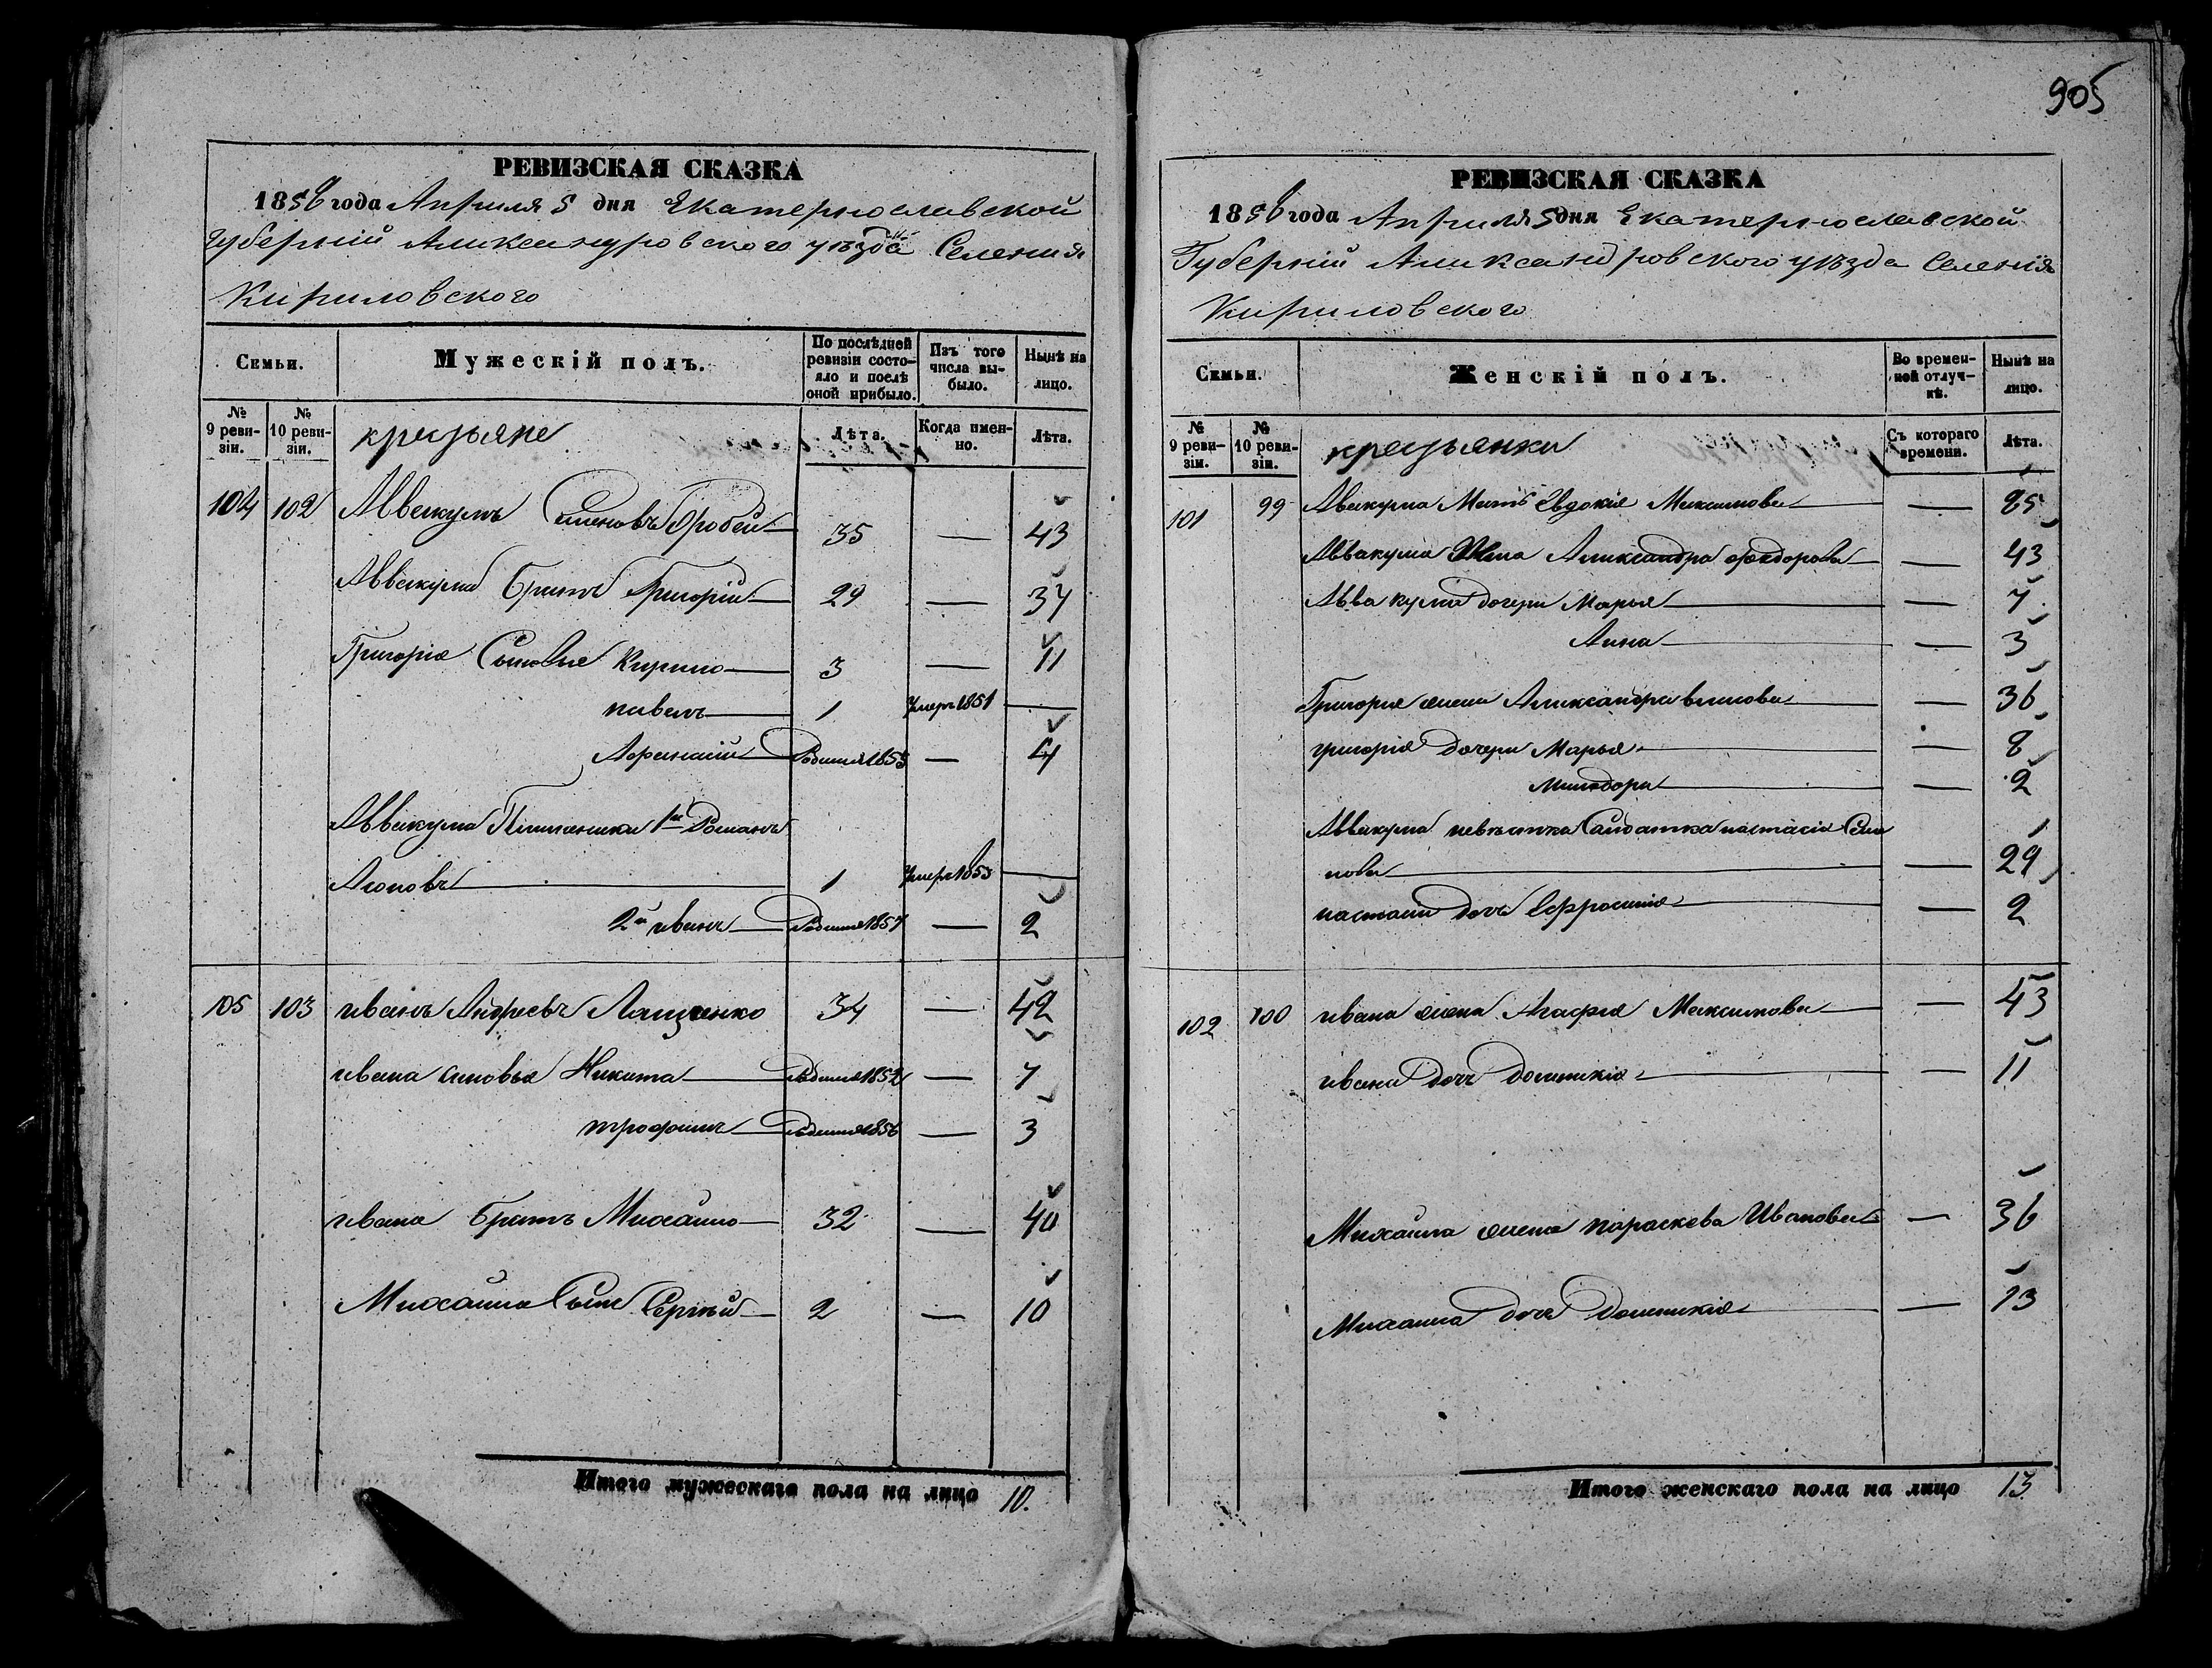 905
РЕВИЗСКАЯ СКАЗКА
1858 года Апреля 5 дня Екатеринославской
Губерній Александровского уѣзда Селения
Кириловского
Семьи.
Мужескій полъ.
По послѣдней ревизіи состо-
яло и послѣ оной прибыло.
Изъ того числа вы-
было.
Нынѣ на лицо.
№ 9 реви-
зіи.
№ 10 реви-
зіи.
Лѣта.
Когда имен-
но.
Лѣта.
104 102 Аввакумъ Семеновъ 35 — 43
Аввакума Братъ Григорій 29 — 37
Григорія Сыновья Кирило 3 — 11
павелъ 1 Умеръ 1851 —
Афанасій Родился 1855 — 4
Аввакума Племеники 1й Романъ
1 Умеръ 1853 —
2й иванъ Родился 1857 — 2
105 103 иванъ Андреевъ Лащенко 34 — 42
ивана синовья Никита Родился 1852 — 7
трофимъ Родился 1856 — 3
ивана братъ Михайло 32 — 40
Михайла Сынъ Сергѣй 2 — 10
Итого мужескаго пола на лицо 10.
РЕВИЗСКАЯ СКАЗКА
1858 года Апреля 5 дня Екатеринославской
Губерній Александровского уѣзда Селенія
Кириловского
Семьи.
Женскій полъ.
Во времен-
ной отлуч-
кѣ.
Нынѣ на лицо.
№ 9 реви-
зіи.
№ 10 реви-
зіи.
Съ котораго времени.
Лѣта.
101 99 Авакума Мать Евдокія Максимова — 85
Аввакума Жена Александра Федорова — 43
Аввакума дочери Марья — 7
Анна — 3
Григорія жена Александра — 36
григорія дочери Марья — 8
— 2
Аввакума невѣстка Солдатка настасія Семе
нова — 29
настасіи дочь Ефросинія — 2
102 100 ивана жена Агафія Максимова — 43
ивана дочь Домникія — 11
Михаила жена параскева Иванова — 36
Михаила дочь Домникія — 13
Итого женскаго пола на лицо 13